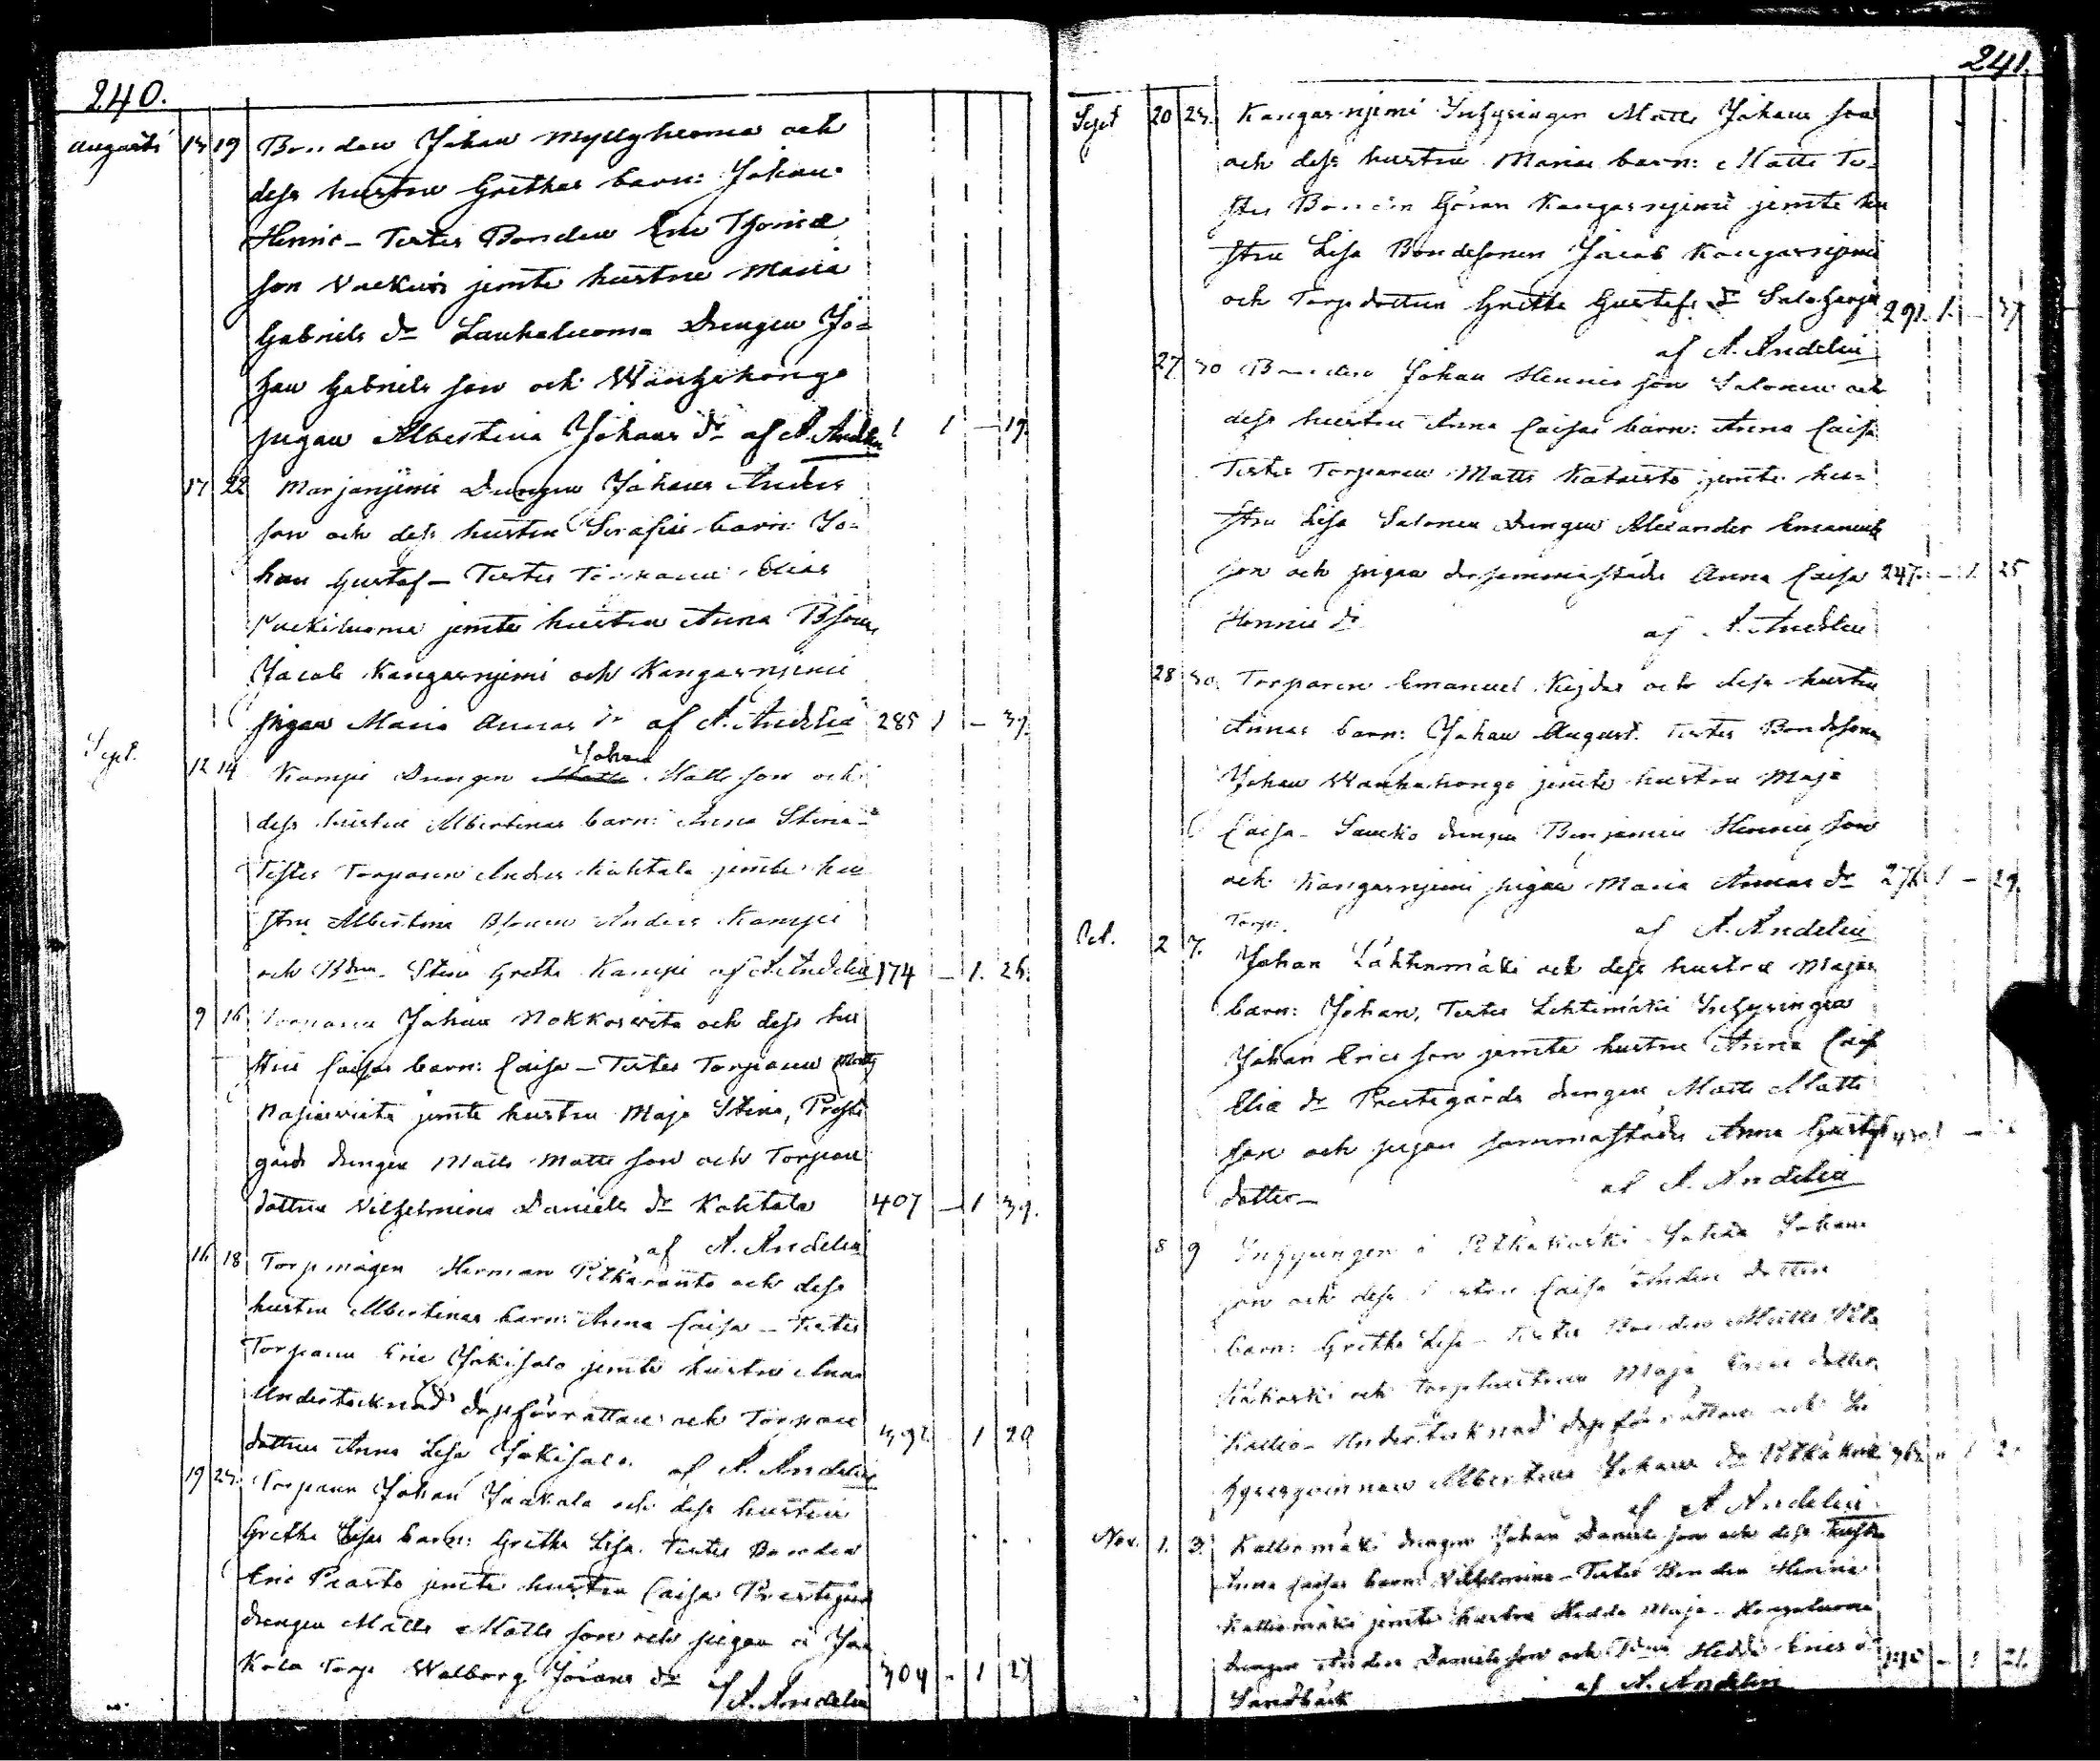 240.
Augusti 13 19 Bonden Johan Myllyluoma och
dess hustru Grethas barn: Johan
Henric – Testes Bonden Eric Thomæ
son jemte hustru Maria
Gabriels dr Laukaluoma Drengen Jo=
han Gabriels son och Wanhahongo
pigan Albertina Johans dr af A. Andelin 1 1 – 19.
17 22 Marjanjemi Drengen Johan Anders
son och dess hustru Serafias barn: Jo=
han Gustaf – Testes Torparen Elias
jemte hustru Anna Bsonen
Jacob Kangasnjemi och Kangasnjemi
pigan Maria Annas dr af A. Andelin 285 1 – 39.
Sept. 12 14 Kampi Drengen Johan Matts son och
dess hustru Albertinas barn: Anna Stina –
Testes Torparen Anders Kahtala jemte hu
stru Albertina Bsonen Anders Kampi
och Bdrn Stina Gretha Kampi af A. Andelin 174 – 1. 26.
9 16 Torparen Johan Nokkoswita och dess hu
stru Caisas barn: Caisa – Testes Torparen Matts
jemte hustru Maja Stina, Preste
gårds drengen Matts Matts son och Torpare
dottren Vilhelmina Daniels dr Kahtala 407 – 1 39.
af A. Andelin
16 18 Torpmågen Herman Pitkäranta och dess
hustru Albertinas barn: Anna Caisa – Testes
Torparen Eric Jokisalo jemte hustru Anna
Undertecknad dopförrättare och Torpare
dottren Anna Lisa Jokisalo. 1 29
af A. Andelin
19 23. Torparen Johan Jaakola och dess hustru
Gretha Lisas barn: Gretha Lisa. Testes Bonden
Eric Peasto jemte hustru Caisa Prestegårds
drengen Matts Matts son och pigan å Jaa
kola Torp Walborg Johans dr 304 – 1 27
af A. Andelin
241.
Sept 20 23. Kangasnjemi Inhysingen Matts Johans son
och dess hustru Marias barn: Matts Te-
stes Bonden Göran Kangasnjemi jemte hu
stru Lisa Bondesonen Jacob Kangasnjemi
och Torpdottren Gretha Gustafs dr Saloharju 291. 1. – 37
af A. Andelin
27 30 Bonden Johan Henrics son Salonen och
dess hustru Anna Caisas barn: Anna Caisa
Testes Torparen Matts Kataisto jemte hu=
stru Lisa Salonen Drengen Alexander Emanuels
son och pigan dersammastädes Anna Caisa 247. – 1. 25
Henrics dr
af A. Andelin
28 30. Torparen Emanuel och dess hustru
Annas barn: Johan August. Testes Bondesonen
Johan Wanhahongo jemte hustru Maja
Caisa – Saucko drengen Benjamin Henrics son
och Kangasnjemi pigan Maria Annas dr 276. 1 – 29.
af A. Andelin
Oct. 2 7. Torp:
Johan Lähteenmäki och dess hustru Majas
barn: Johan, Testes Lehtimäki Inhysingen
Johan Erics son jemte hustru Anna Caisa
Eliæ dr Prestegårds drengen Matts Matts
son och pigan sammastädes Anna Gustafs
dotter –
af A. Andelin
8 9 Inhysingen å Pitkäkoski Johan Johans
son och dess hustru Caisa Anders dotters
barn: Gretha Lisa – Testes Bonden Matts Pitkä
koski och Torphustrun Maja Erics dotter
Kallio – Undertecknad dopförrättare och In
hysesqvinnan Albertina Johans dr Pitkäkoski
af A. Andelin
Nov. 1. 3. Kalliomäki drengen Johan Daniels son och dess hustru
Anna Caisas barn: Vilhelmina – Testes Bonden Henric
Kalliomäki jemte hustru Hedda Maja –
drengen Anders Daniels son och Hedda Erics dr
Sandbäck
af A. Andelin